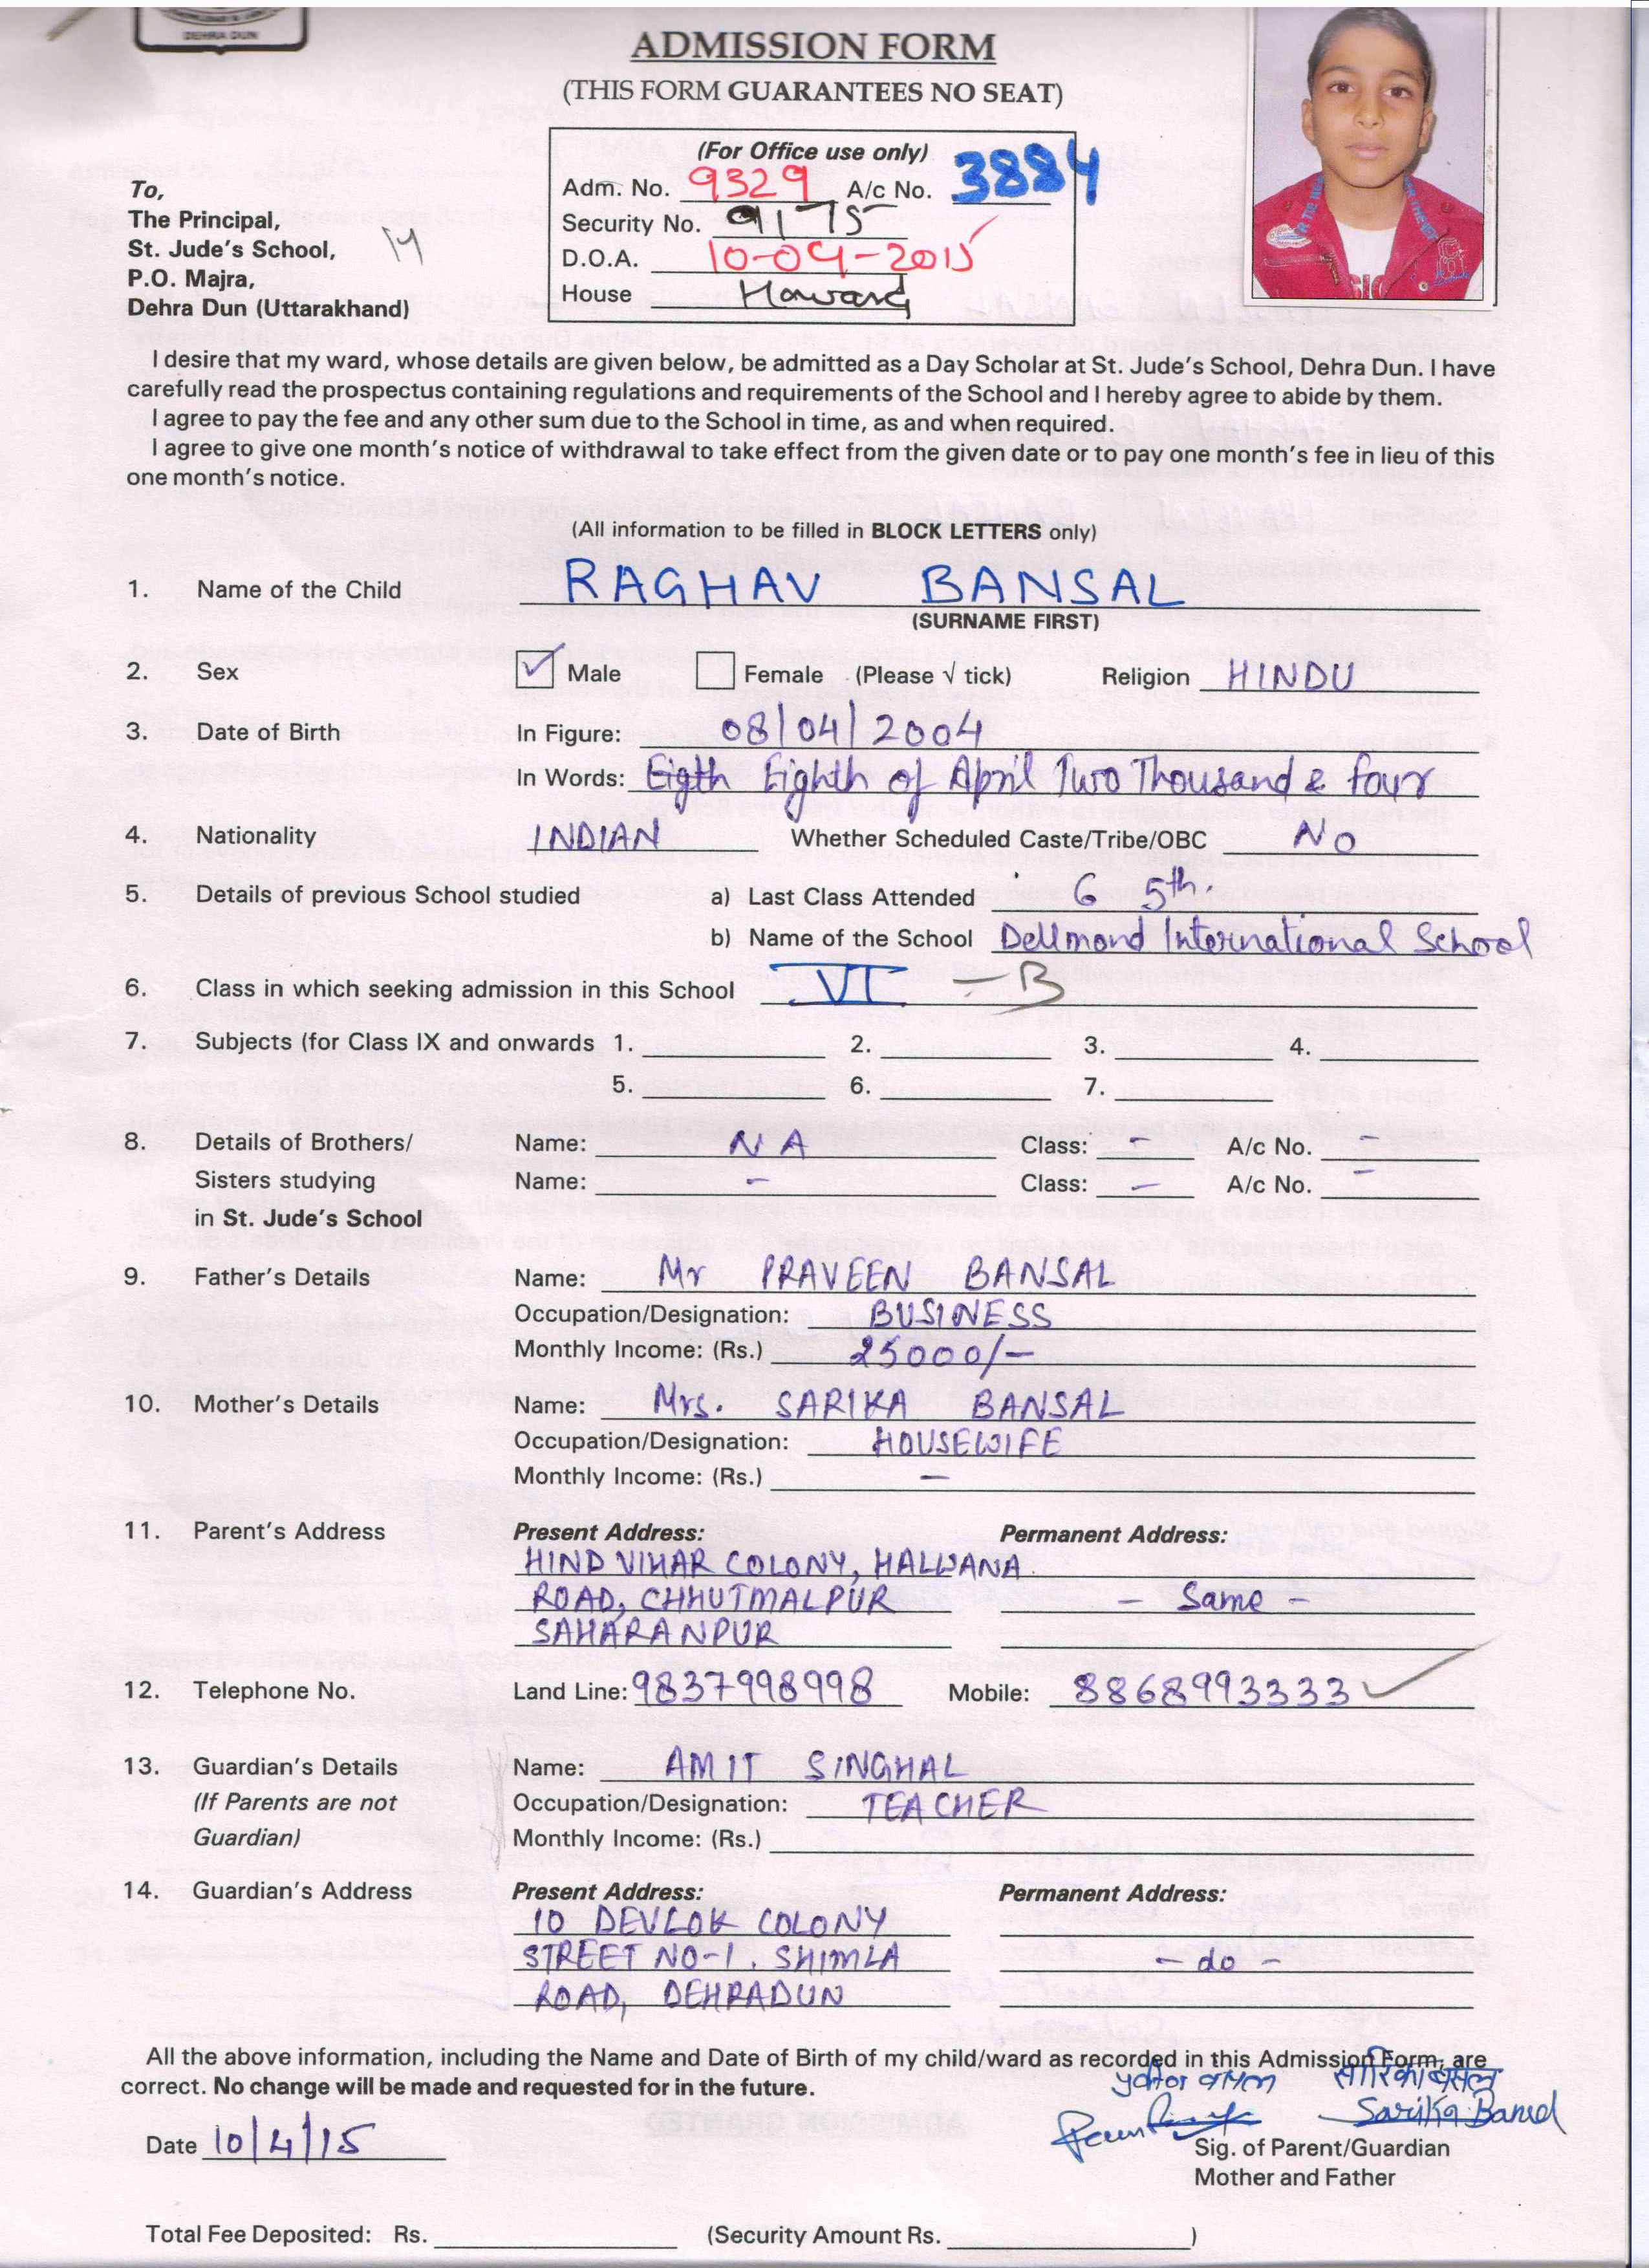 DEHRA DUN
ADMISSION FORM
(THIS FORM GUARANTEES NO SEAT)
(For Office use only)
Adm. No. 9329 A/c No. 3884
Security No. 9175
D.O.A. 10-04-2015
House Howard
To,
The Principal,
St. Jude's School,
P.O. Majra,
Dehra Dun (Uttarakhand)
I desire that my ward, whose details are given below, be admitted as a Day Scholar at St. Jude's School, Dehra Dun. I have
carefully read the prospectus containing regulations and requirements of the School and I hereby agree to abide by them.
I agree to pay the fee and any other sum due to the School in time, as and when required.
I agree to give one month's notice of withdrawal to take effect from the given date or to pay one month's fee in lieu of this
one month's notice.
(All information to be filled in BLOCK LETTERS only)
1. Name of the Child RAGHAV BANSAL
(SURNAME FIRST)
2. Sex ✓ Male Female (Please √ tick) Religion HINDU
3. Date of Birth In Figure: 08/04/2004
In Words: Eigth Eighth of April Two Thousand & four
4. Nationality INDIAN Whether Scheduled Caste/Tribe/OBC NO
5. Details of previous School studied a) Last Class Attended 6 5th.
b) Name of the School Dellmond International School
6. Class in which seeking admission in this School VI - B
7. Subjects (for Class IX and onwards 1. 2. 3. 4.
5. 6. 7.
8. Details of Brothers/ Name: NA Class: - A/c No. -
Sisters studying Name: - Class: - A/c No. -
in St. Jude's School
9. Father's Details Name: Mr PRAVEEN BANSAL
Occupation/Designation: BUSINESS
Monthly Income: (Rs.) 25000/-
10. Mother's Details Name: Mrs. SARIKA BANSAL
Occupation/Designation: HOUSEWIFE
Monthly Income: (Rs.) -
11. Parent's Address Present Address: Permanent Address:
HIND VIHAR COLONY, HALWANA
ROAD, CHHUTMALPUR - Same -
SAHARANPUR
12. Telephone No. Land Line: 9837998998 Mobile: 8868993333
13. Guardian's Details Name: AMIT SINGHAL
(If Parents are not Occupation/Designation: TEACHER
Guardian) Monthly Income: (Rs.)
14. Guardian's Address Present Address: Permanent Address:
10 DEVLOK COLONY
STREET NO-1, SHIMLA - do -
ROAD, DEHRADUN
All the above information, including the Name and Date of Birth of my child/ward as recorded in this Admission Form, are
correct. No change will be made and requested for in the future.
सारिका बंसल
Sarika Bansal
Date 10/4/15
Sig. of Parent/Guardian
Mother and Father
Total Fee Deposited: Rs. (Security Amount Rs. )